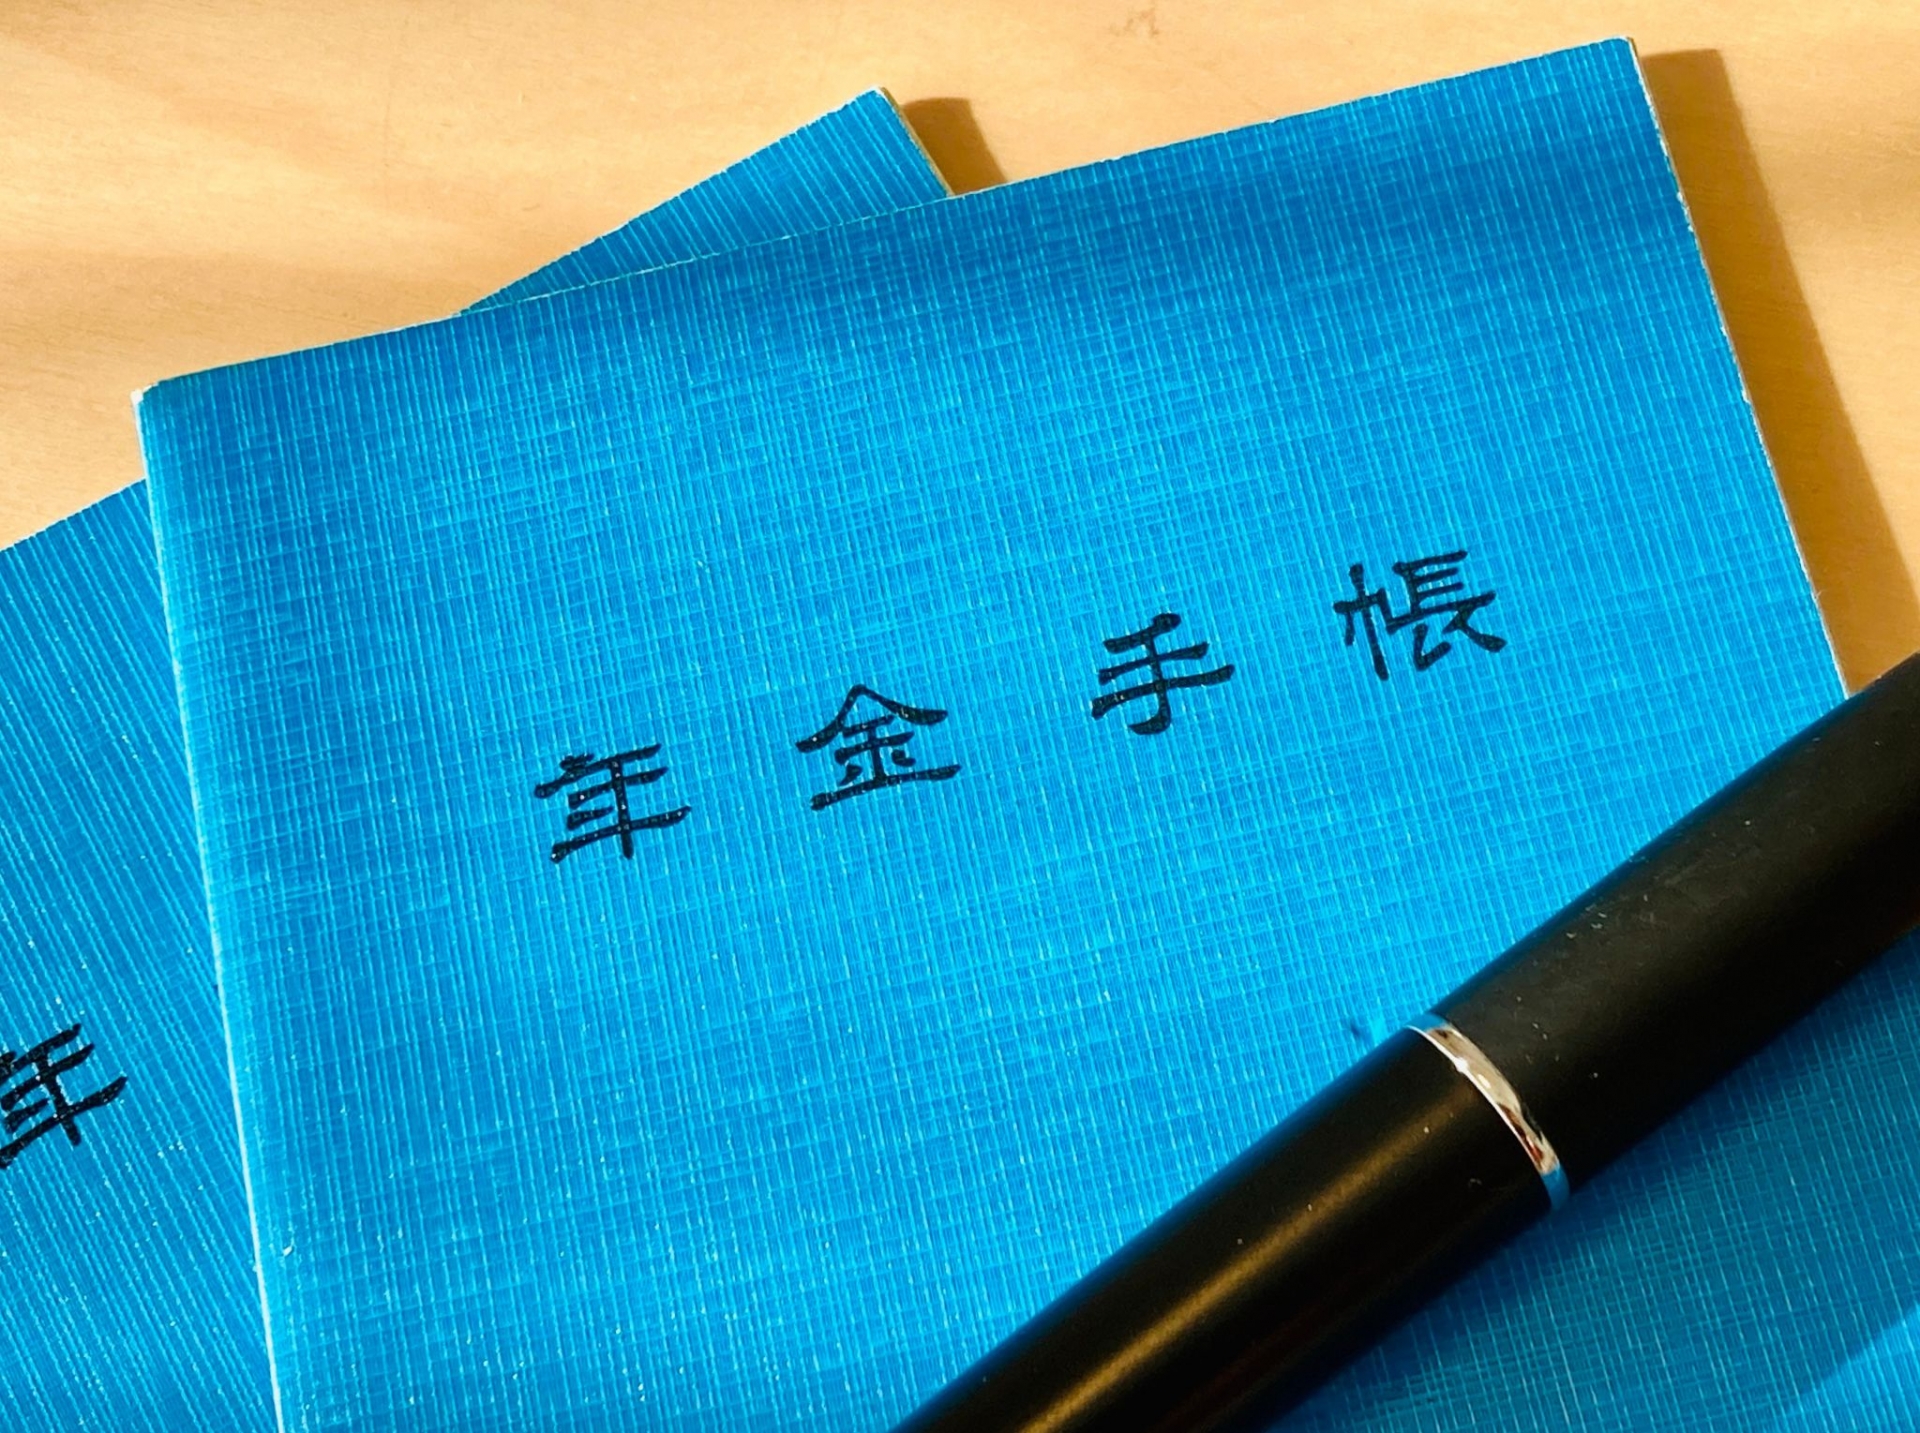 年金手帳
年